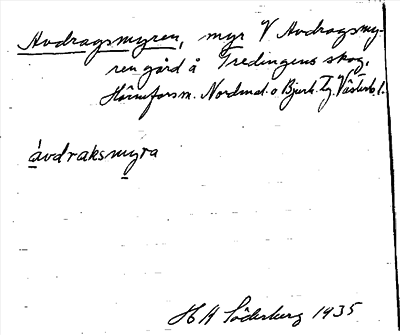 Avdragsmyren, myr V Avdragsmy-
ren gård å Tredingens skog,
Hörneforsm. Nordmal. o Bjurh. Tg. Västerb. l.
ávdraksmyra
H A Söderberg 1935